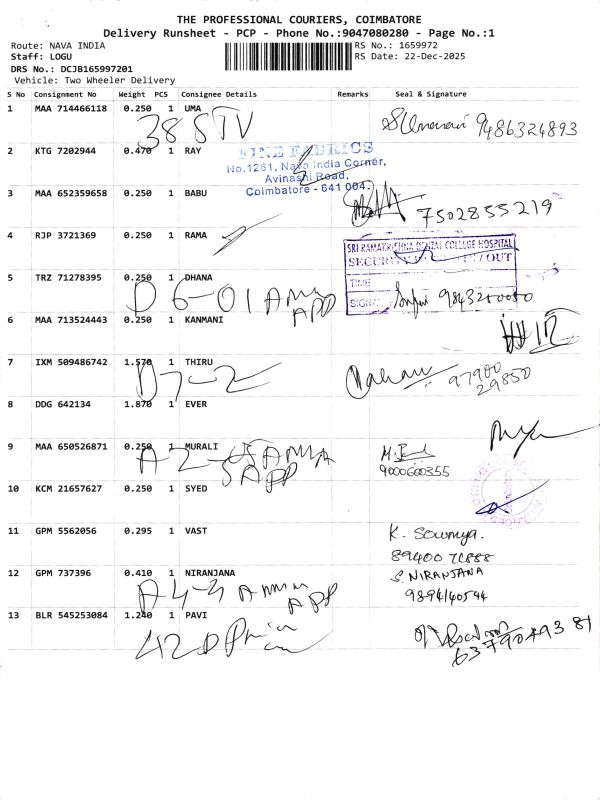 THE PROFESSIONAL COURIERS, COIMBATORE
Delivery Runsheet - PCP - Phone No.:9047080280 - Page No.:1
Route: NAVA INDIA
RS No.: 1659972
Staff: LOGU
RS Date: 22-Dec-2025
DRS No.: DCJB165997201
Vehicle: Two Wheeler Delivery
S No Consignment No Weight PCS Consignee Details Remarks Seal & Signature
1 MAA 714466118 0.250 1 UMA
38 STV
9486324893
2 KTG 7202944 0.470 1 RAY
FINE FABRICS
No.1261, Nava India Corner,
Avinashi Road,
Coimbatore - 641 004.
3 MAA 652359658 0.250 1 BABU
7502855219
4 RJP 3721369 0.250 1 RAMA
SRI RAMAKRISHNA DENTAL COLLEGE HOSPITAL
SECURITY IN / OUT
TIME
SIGNA
5 TRZ 71278395 0.250 1 DHANA
D 6-01 Amma
APP
6 MAA 713524443 0.250 1 KANMANI
7 IXM 509486742 1.570 1 THIRU
D7-2
97900
29850
8 DDG 642134 1.870 1 EVER
9 MAA 650526871 0.250 1 MURALI
APP
9000600355
10 KCM 21657627 0.250 1 SYED
11 GPM 5562056 0.295 1 VAST
K. Sowmya.
12 GPM 737396 0.410 1 NIRANJANA
A4-3 Amma
APP
S. NIRANJANA
9894140544
13 BLR 545253084 1.240 1 PAVI
42D